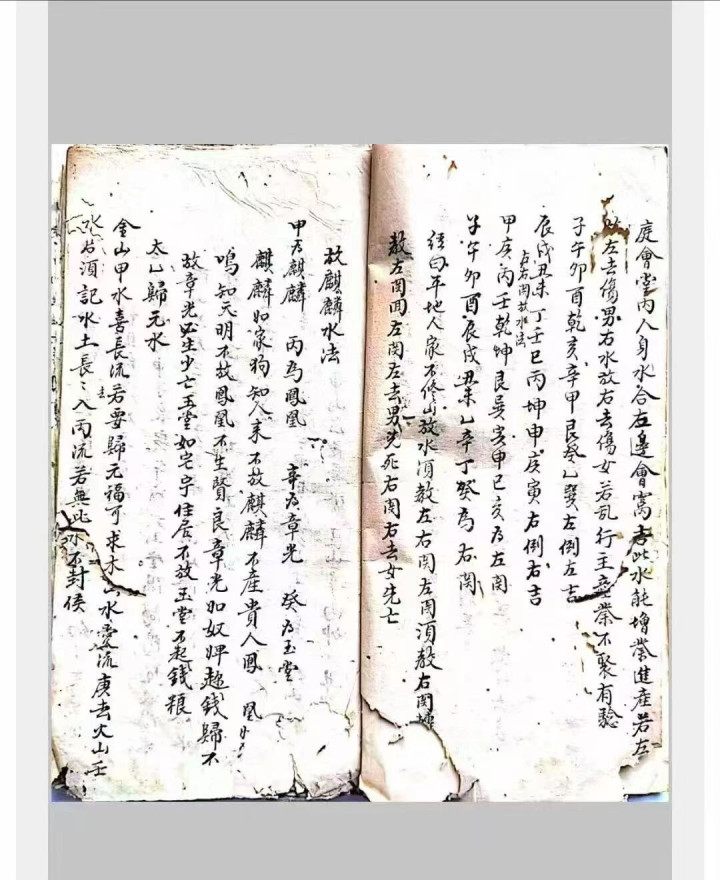 庭會堂內人身水合左邊會窩 此水能增榮進產若左
左去傷男右水放右去傷女若乱行主 業不聚有驗
子午卯酉乾亥辛甲艮癸乙巽左倒左吉
辰戌丑未丁壬巳丙坤申庚寅右倒右吉
占左右閗放水法
甲庚丙壬乾坤艮巽寅申巳亥为左閗
子午卯酉辰戌丑未乙辛丁癸為右閗
經曰平地人家不修山放水須教左右閗左閗須教右閗
教左閗 左閗左去男先死右閗右去女先亡
放麒麟水法
甲为麒麟 丙為鳳凰 辛为章光 癸为玉堂
麒麟如家狗知人來不放麒麟不産貴人鳳凰
鳴知天明不放鳳凰不生賢良章光如奴婢 錢歸不
放章光必生少亡玉堂如宅宇住居不放玉堂不起錢粮
太乙歸元水
金山甲水喜長流若要歸元福可求木山水愛流庚去火山壬
水 須記水土長々入丙流若無此水不封侯